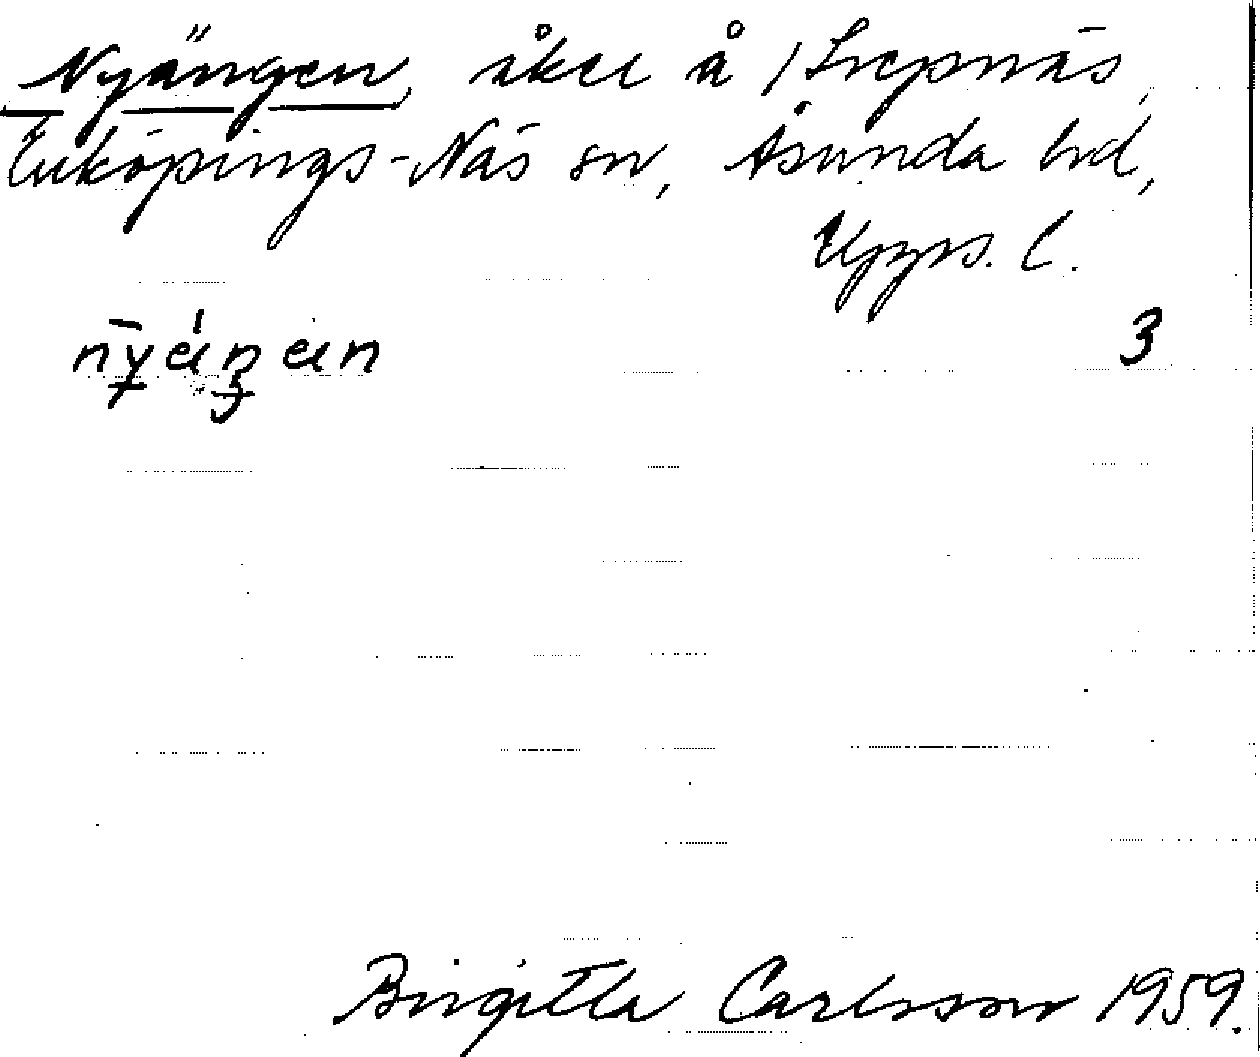 Nyängen, åker å 1 Srepnäs,
Enköpings-Näs sn, Åsunda hd,
Upps. l.
3
Birgitta Carlsson 1959.